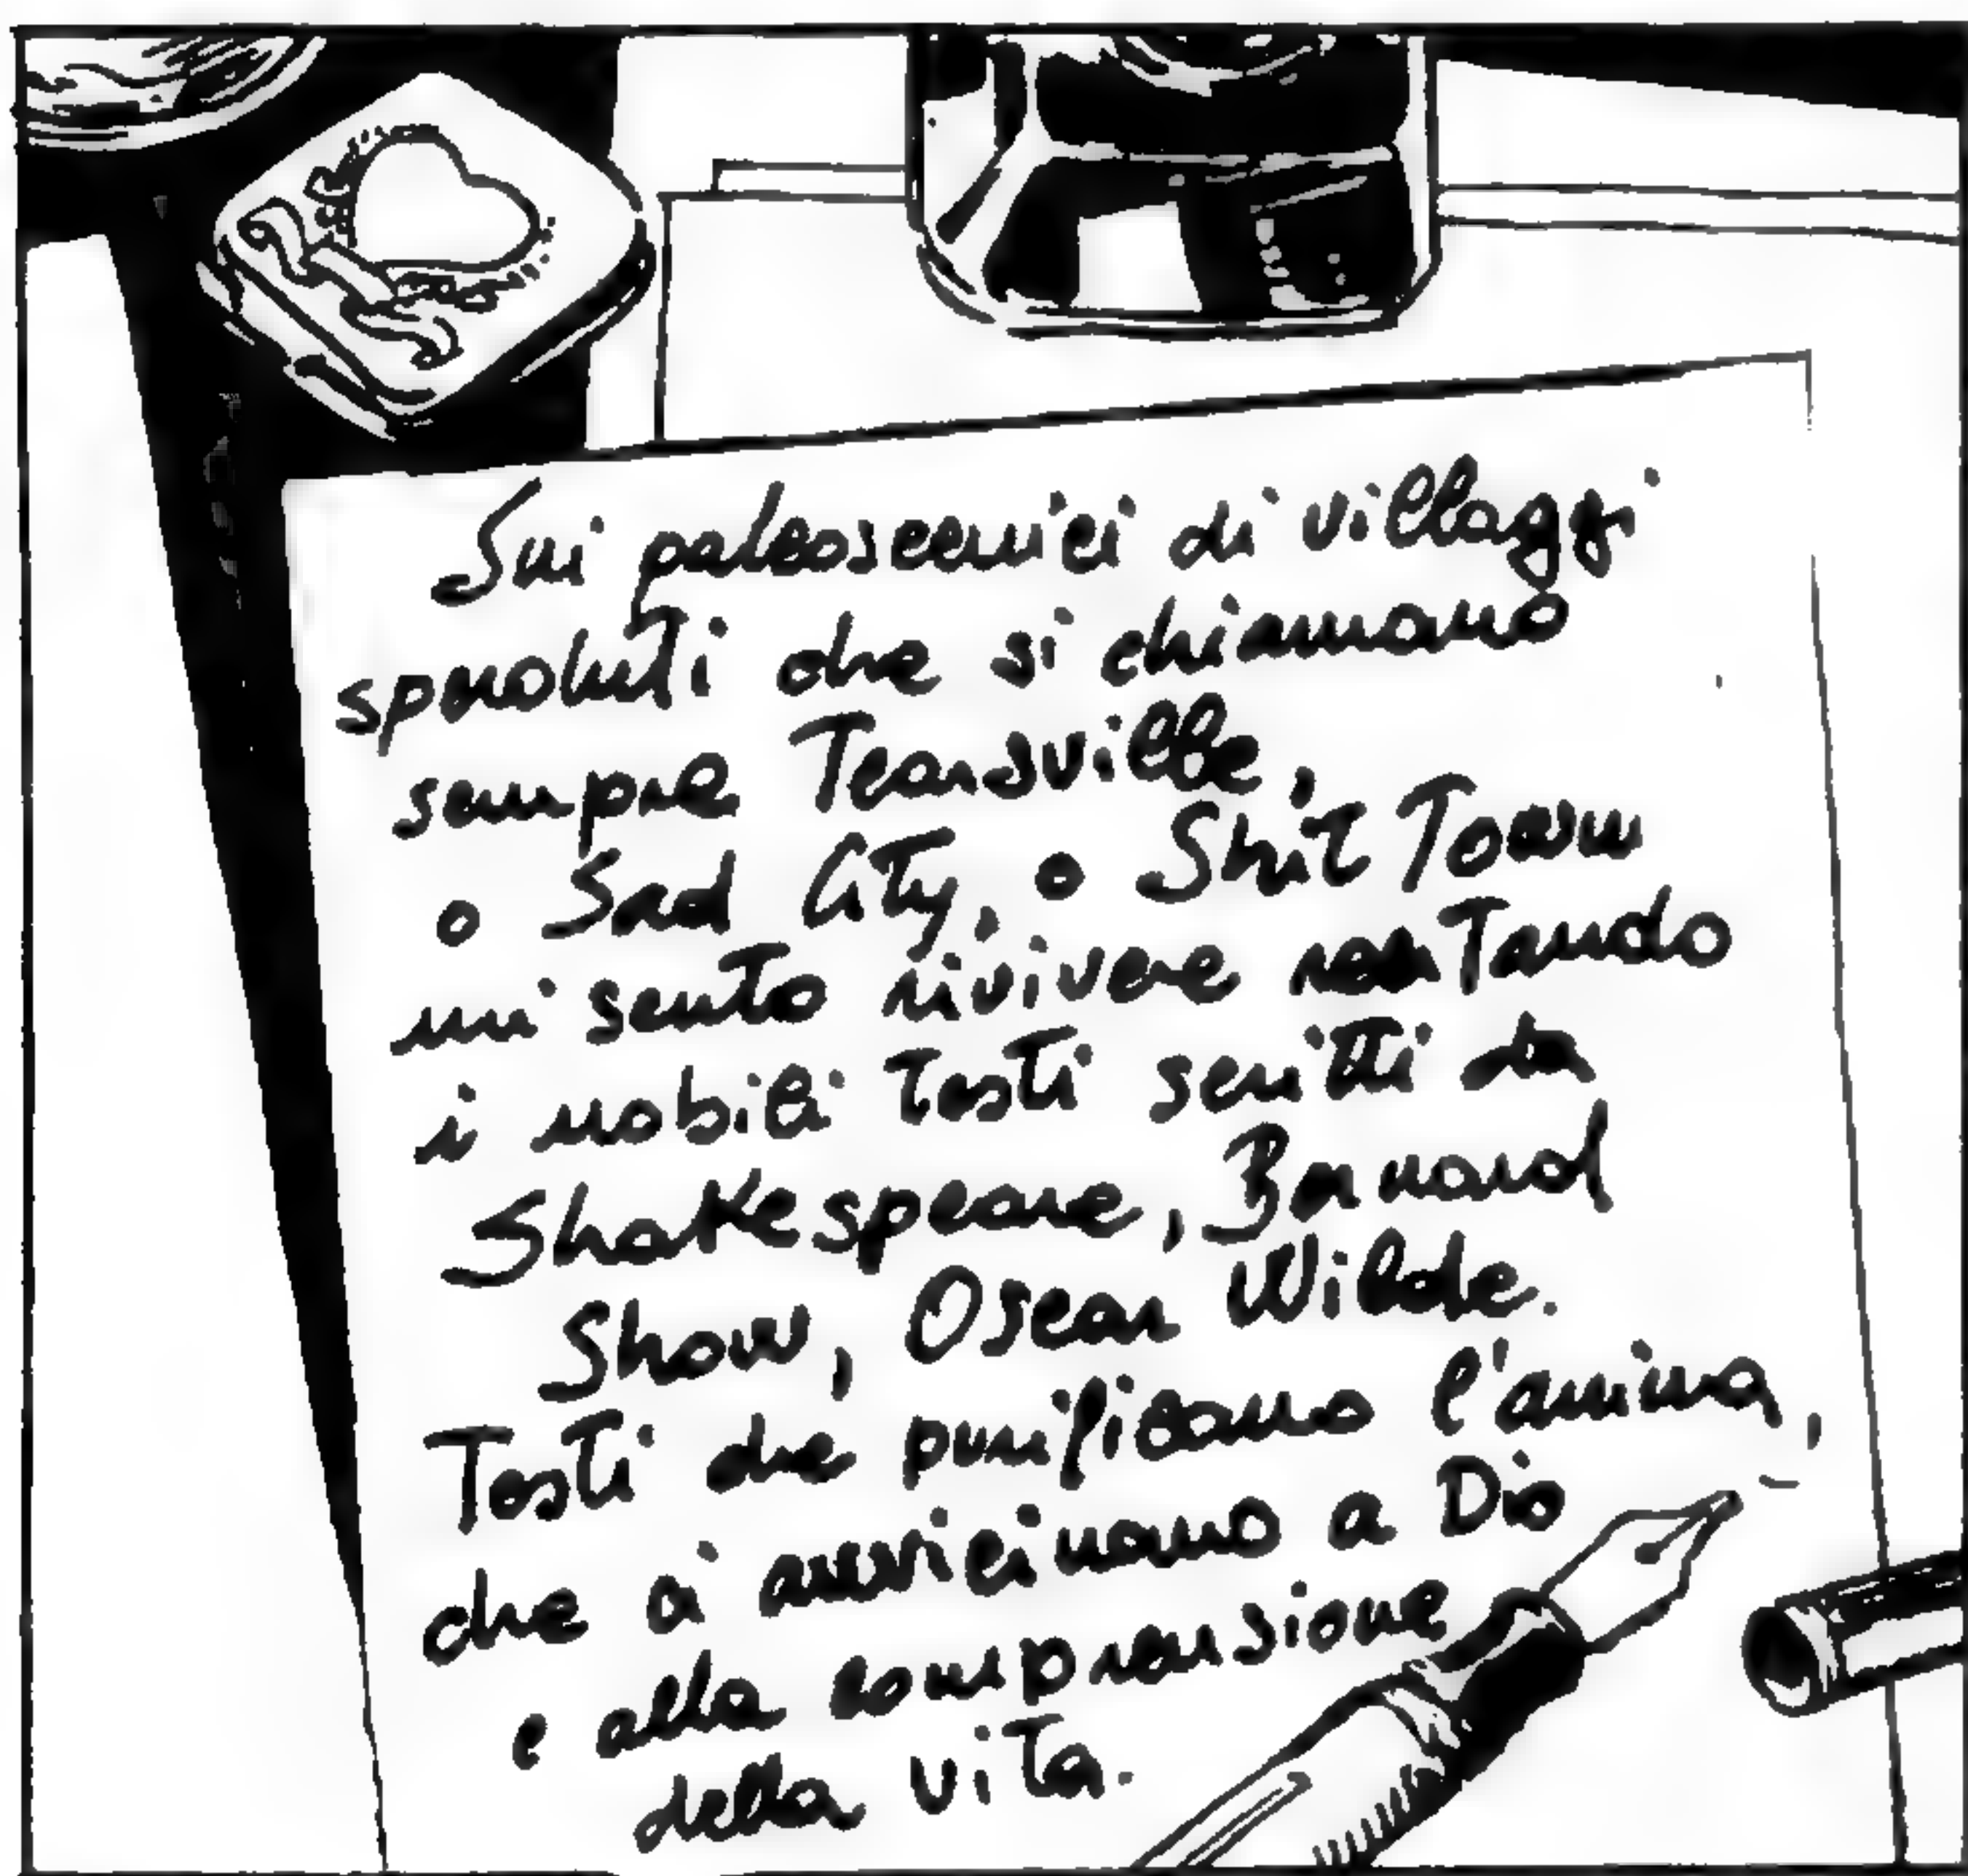 Sui palcoscenici di villaggi
sperduti che si chiamano
sempre Tearsville,
o Sad City, o Shit Town
mi sento rivivere recitando
i nobili testi scritti da
Shakespeare, Bernard
Show, Oscar Wilde.
Testi che purificano l'anima,
che ci avvicinano a Dio
e alla comprensione
della vita.